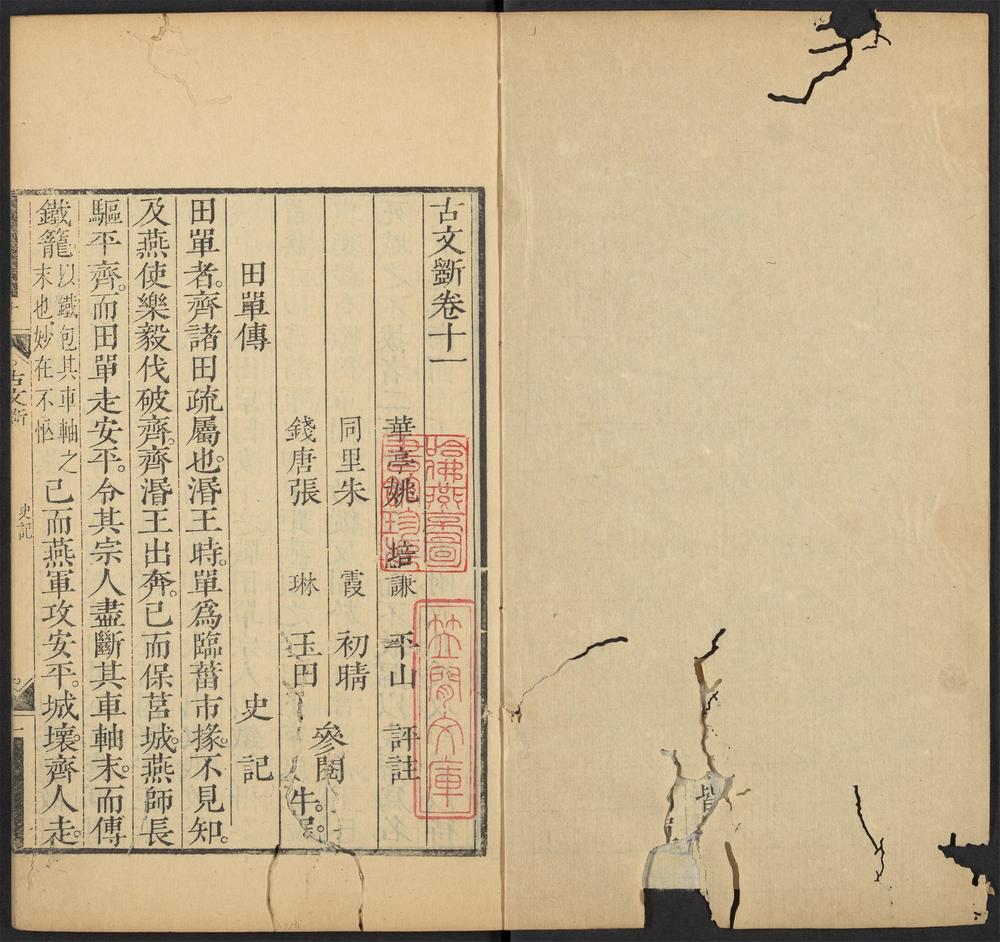 古文斷卷十一
華亭姚 培謙 平山 評註
同里朱 霞 初晴
參閱
錢唐張 琳 玉田
田單傳 史記
田單者。齊諸田疏屬也。湣王時。單爲臨菑市掾。不見知。
及燕使樂毅伐破齊。齊湣王出奔。已而保莒城。燕師長
驅平齊。而田單走安平。令其宗人盡斷其車軸末。而傅
鐵籠以鐵包其車軸之末也。妙在不恠已而燕軍攻安平。城壞。齊人走。
古文斷
史記
一
哈佛燕京圖書館珍藏
皆